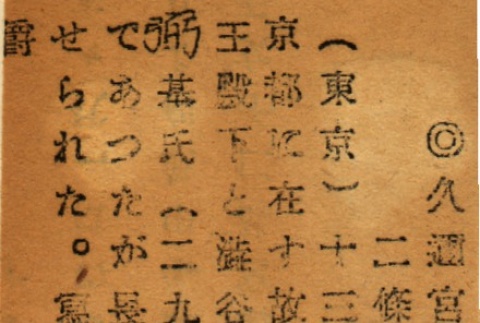 ◎久邇宮
二條
(東京)十三
京都に在す故
王殿下と澁谷
基氏(二九
であつたが長
せられた。寫
爵